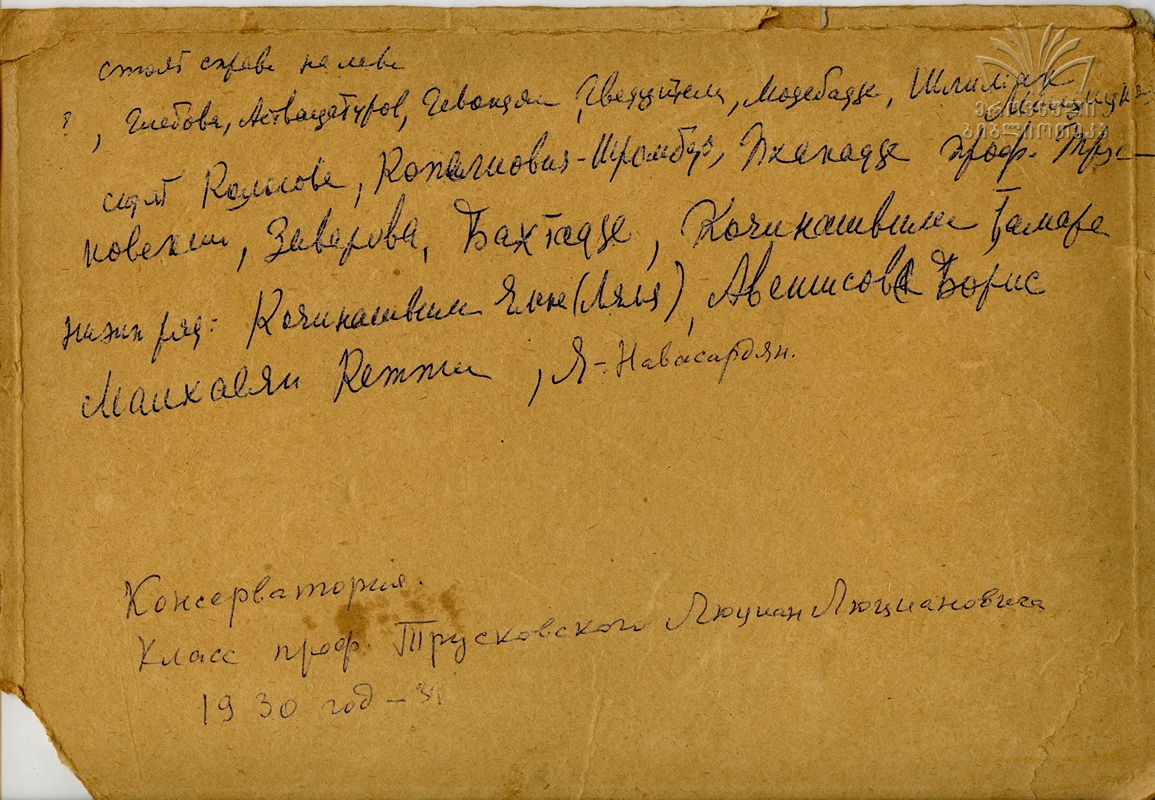 стоят справа налево
?, Глебова, Аствацатуров, Гевондян, Гвердцители, Модебадзе, Шлиомрак
сидят Колосова, Копалиович-Шромбус, Пхакадзе проф. Трус-
ковский, Заварова, Бахтадзе, Кочинашвили Тамара
нижн ряд: Кочинашвили Елене (Ляля), Аветисов Борис
Маилхасян Кетти, Я - Навасардян.
Консерватория.
Класс проф. Трусковского Люциан Люциановича
1930 год - 31
ეროვნული
ბიბლიოთეკა